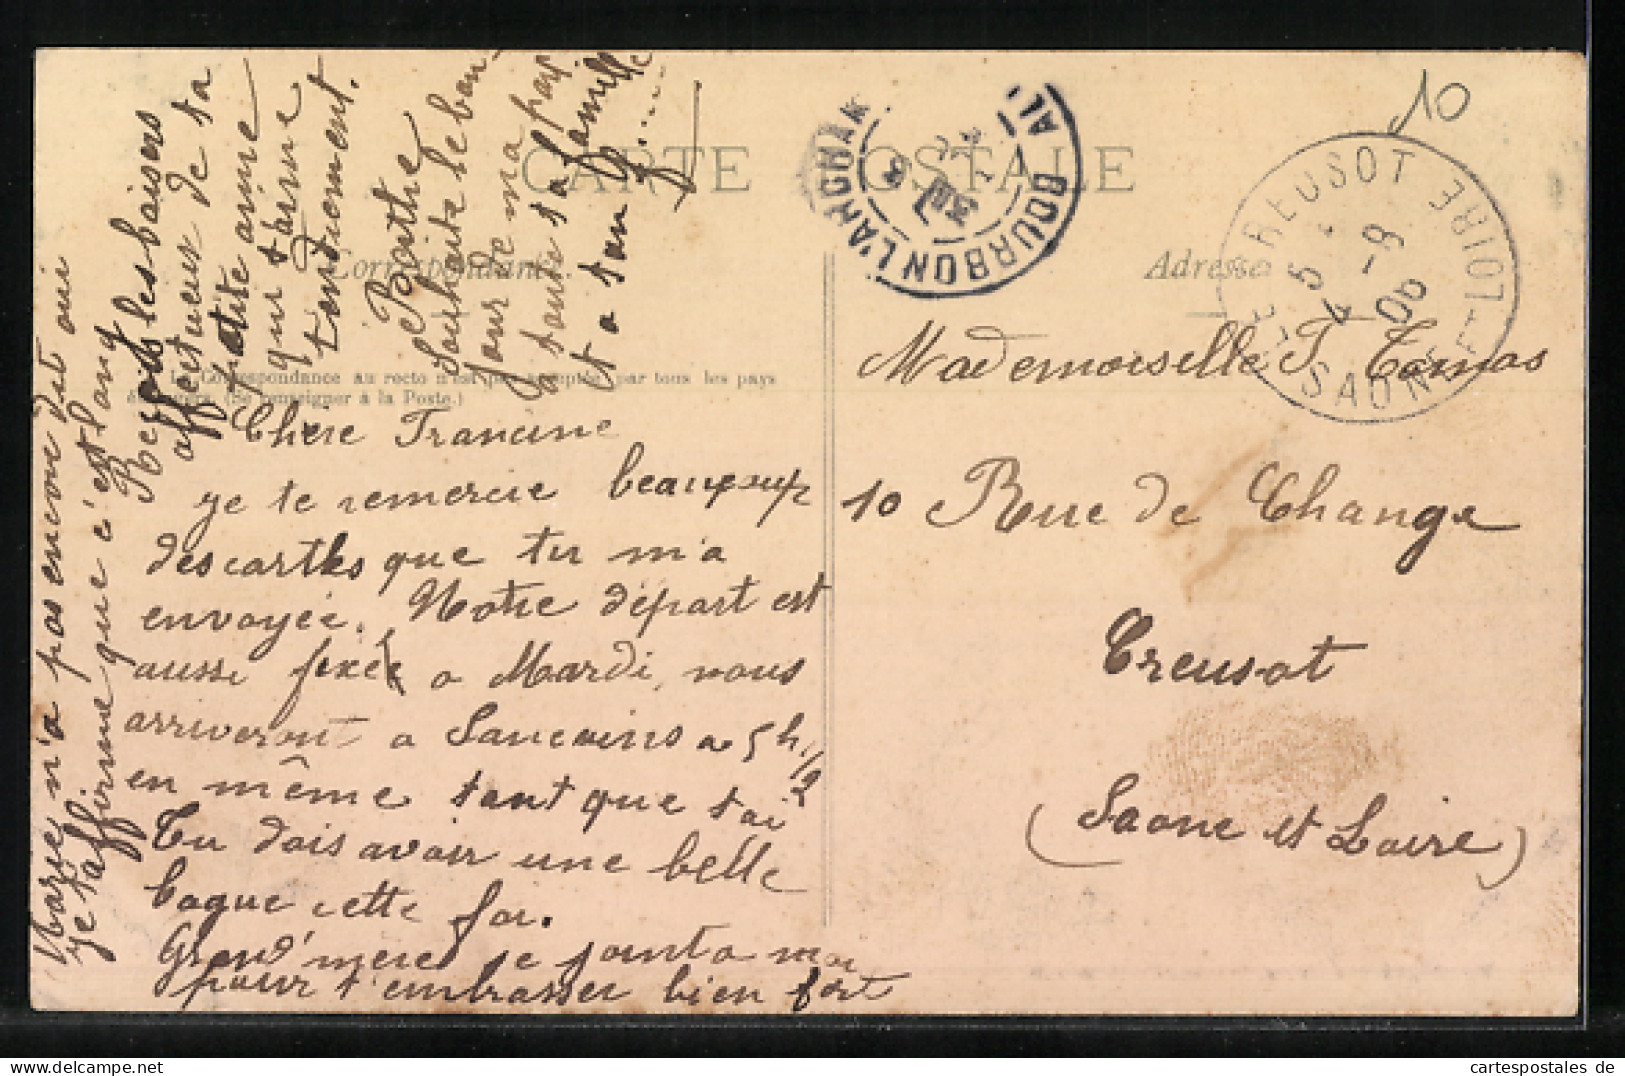 10
CARTE POSTALE
Correspondance
Adresse
La Correspondance au recto n'est pas acceptée par tous les pays
étrangers. (Se renseigner à la Poste.)
BOURBON L'ARCHAMB
LE CREUSOT
5
4 -8
06
SAONE ET LOIRE
Mademoiselle F. Comas
10 Rue de Change
Creusot
(Saone et Loire)
Chère Francine
je te remercie beaucoup
des cartes que tu m'a
envoyée. Notre départ est
aussi fixée a Mardi, nous
arriveront a Sancoins a 5h 1/2
en même tant que toi
Tu dois avoir une belle
bague cette foi.
Grand'mère se joint a moi
pour t'embrasser bien fort
Marie n'a pas encore dit oui
je t'affirme que c'est long
Reçois les baisers
affectueux de ta
petite amie
qui t'aime
tendrement.
Berthe
Souhaite le bon-
jour de ma part
a toute ta famille
et a ton
cartespostales de
www.cartespostales.de